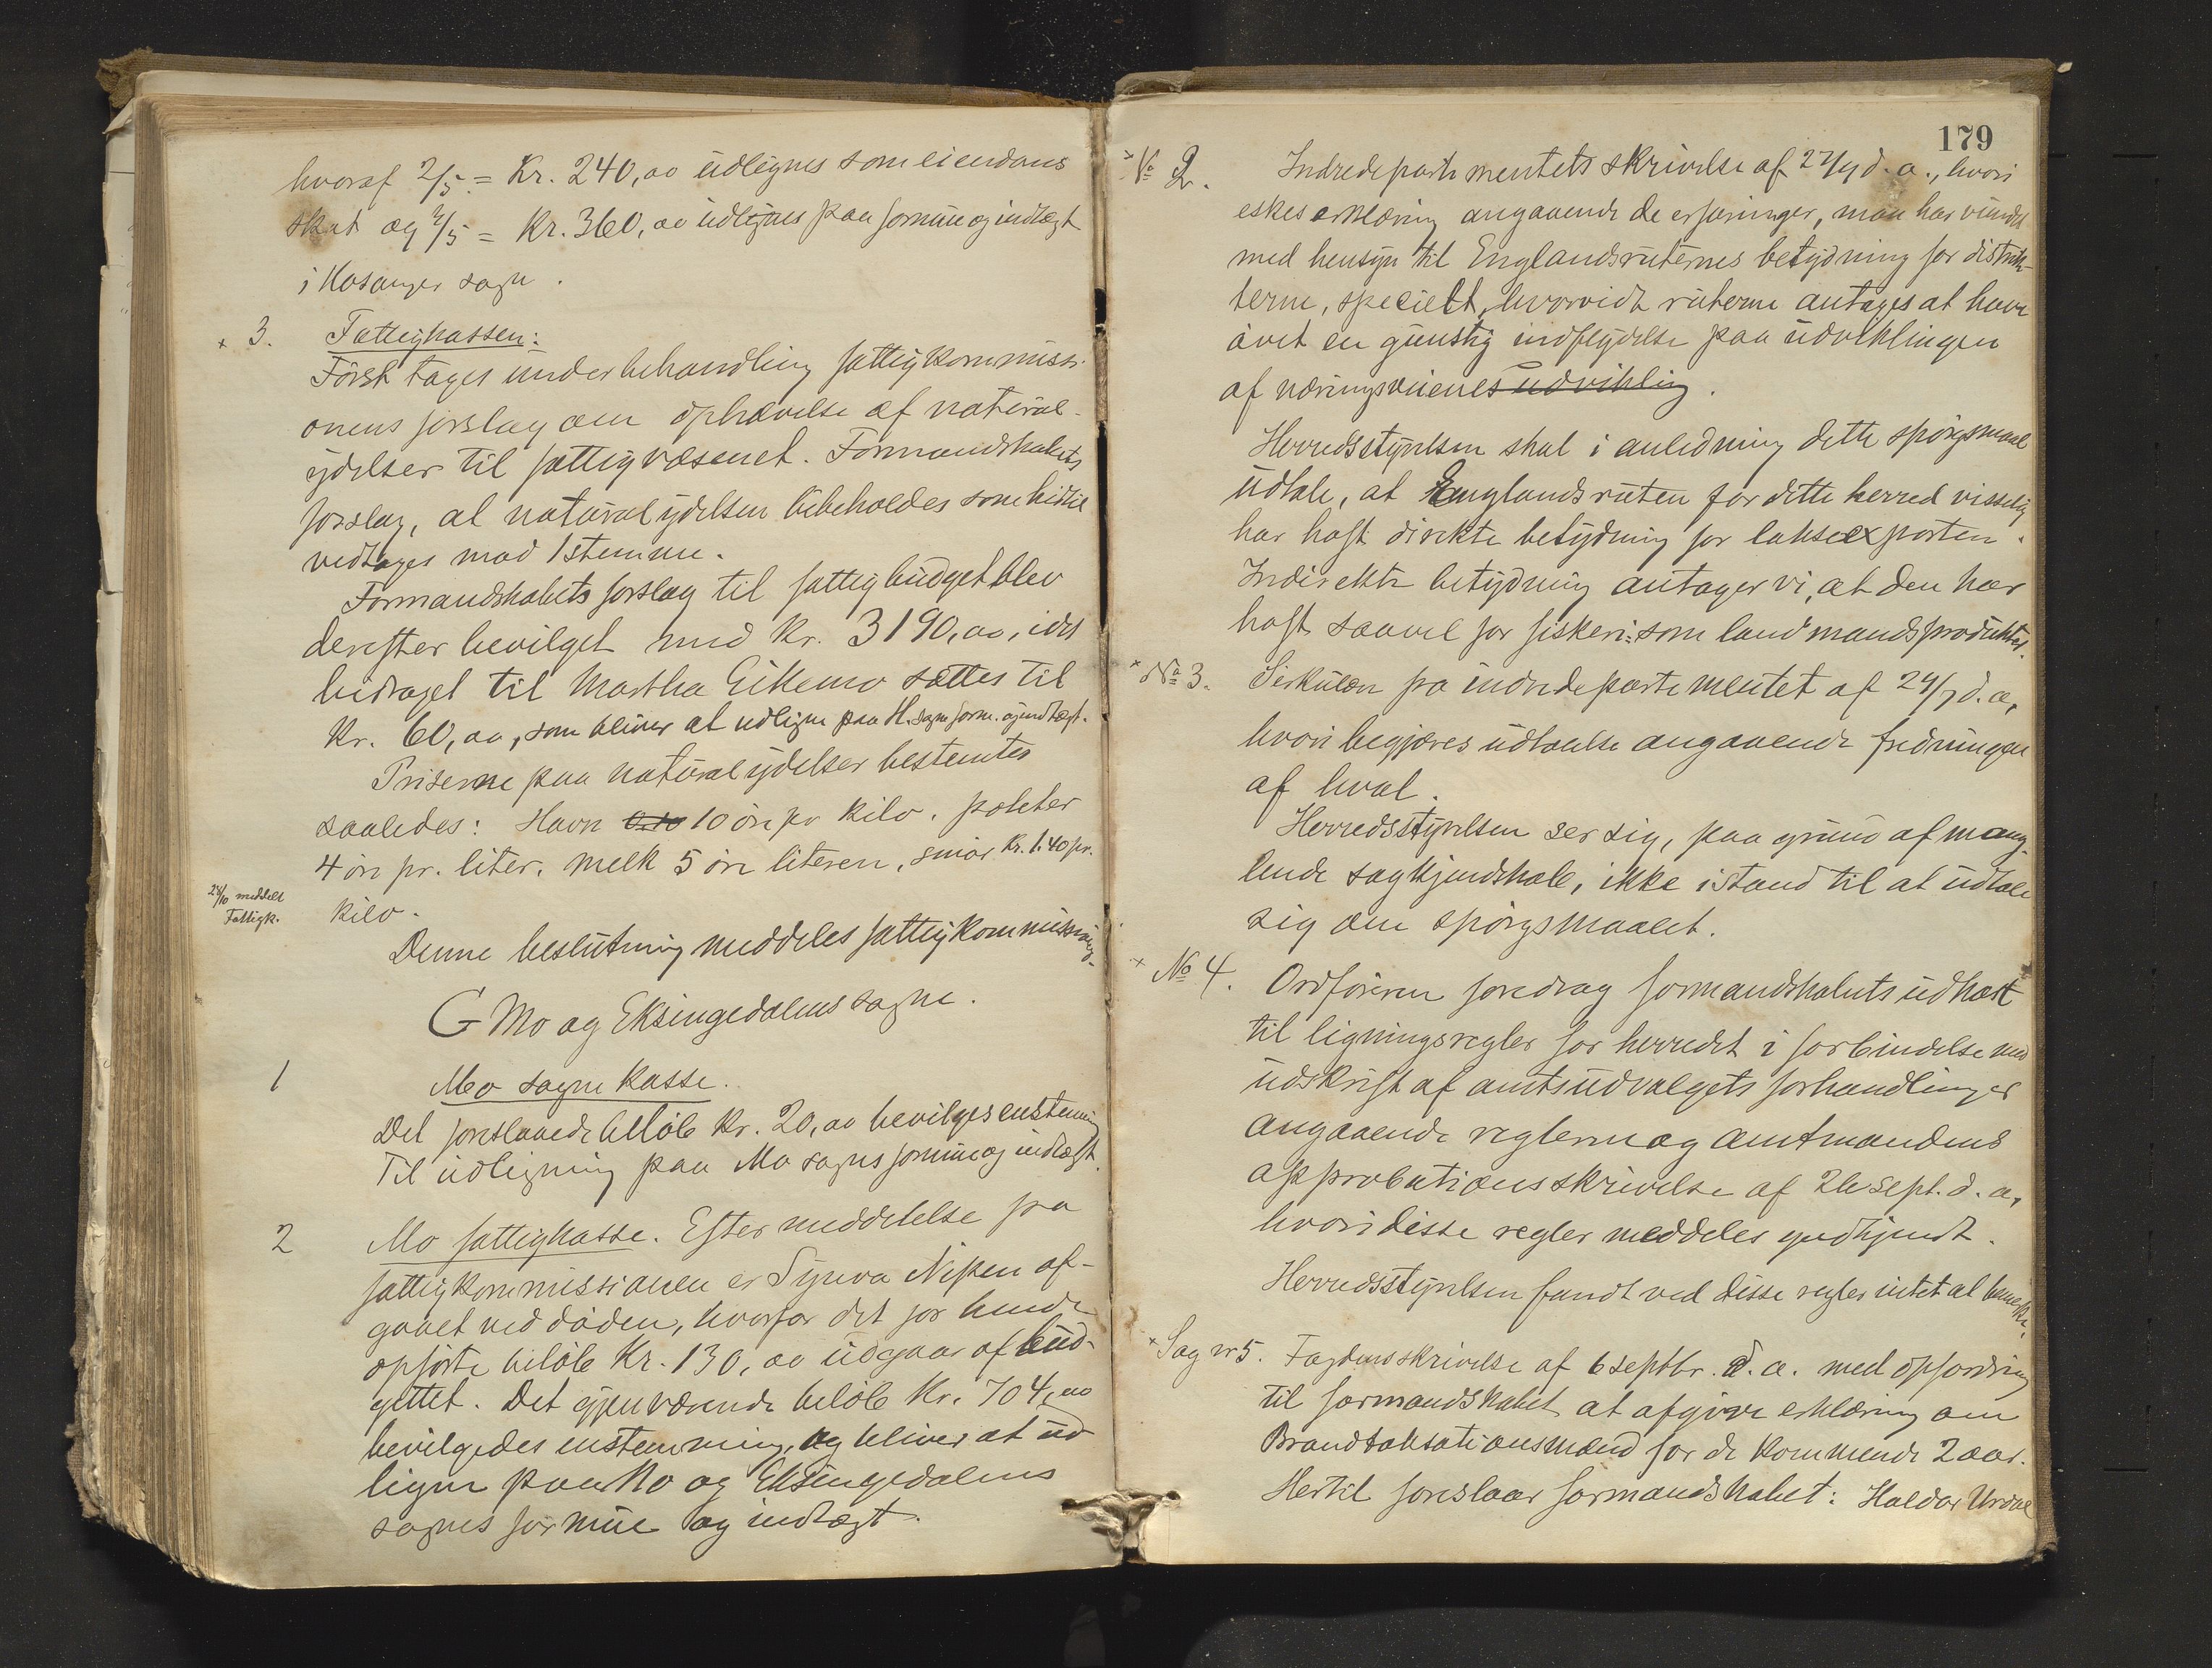 hvoraf 2/5 = Kr. 240,00 udlignes som eiendoms
skat og 3/5 = Kr. 360,00 udlignes paa formue og indtægt
i Hosanger sogn.
× 3. Fattigkassen:
Först tages under behandling fattigkommissi-
onens forslag om ophævelse af natural-
ydelser til fattigvæsenet. Formandskabets
forslag, at naturalydelsen bibeholdes som hidtil
vedtages mod 1 stemme.
Formandskabets forslag til fattigbudget blev
derefter bevilget med Kr. 3190,00, idet
bidraget til Martha Eikemo sættes til
Kr. 60,00, som bliver at udligne paa H. sogns form. og indtægt.
Priserne paa naturalydelser bestemtes
saaledes: Havn 0.10 10 öre pr kilo. poteter
4 öre pr. liter. melk 5 öre literen, smör Kr. 1.40 pr.
kilo.
24/10 meddelt
Fattigk.
Denne beslutning meddeles fattigkommissionen.
G Mo og Eksingedalens sogne.
1 Mo sognekasse.
Det foreslaaede belöb Kr. 20,00 bevilges enstemmig
til udligning paa Mo sogns formue og indtægt.
2 Mo fattigkasse. Efter meddelelse fra
fattigkommissionen er Synva Nipen af-
gaaet ved döden, hvorfor det for hende
opförte belöb Kr. 130,00 udgaar af bud-
gettet. Det gjenværende belöb Kr. 704,00
bevilgedes enstemmig, og bliver at ud-
ligne paa Mo og Eksingedalens
sognes formue og indtægt.
179
× No 2. Indredepartementets skrivelse af 27/9 d. a., hvori
eskes erklæring angaaende de erfaringer, man har vundet
med hensyn til Englandsruternes betydning for distrik-
terne, specielt, hvorvidt ruterne antages at have
övet en gunstig indflydelse paa udviklingen
af næringsveienes udvikling.
Herredsstyrelsen skal i anledning dette spörgsmaal
udtale, at Englandsruten for dette herred visselig
har havt direkte betydning for lakseexporten.
Indirekte betydning antager vi, at den har
havt saavel for fiskeri- som landmandsprodukter.
× No 3. Cirkulære fra indredepartementet af 24/7 d. a,
hvori begjæres udtalelse angaaende fredningen
af hval.
Herredsstyrelsen ser sig, paa grund af mang-
lende sagkjendskab, ikke istand til at udtale
sig om spörgsmaalet.
× No 4. Ordföreren foredrog formandskabets udkast
til ligningsregler for herredet i forbindelse med
udskrift af amtsudvalgets forhandlinger
angaaende reglerne og amtmandens
approbationsskrivelse af 26 sept. d. a,
hvori disse regler meddeles godkjendt.
Herredsstyrelsen fandt ved disse regler intet at bemerke.
× Sag nr 5. Fogdens skrivelse af 6 septbr. d. a. med opfordring
til formandskabet at afgive erklæring om
Brandtakstationsmænd for de kommende 2 aar.
Hertil foreslaar formandskabet: Haldor Urdal